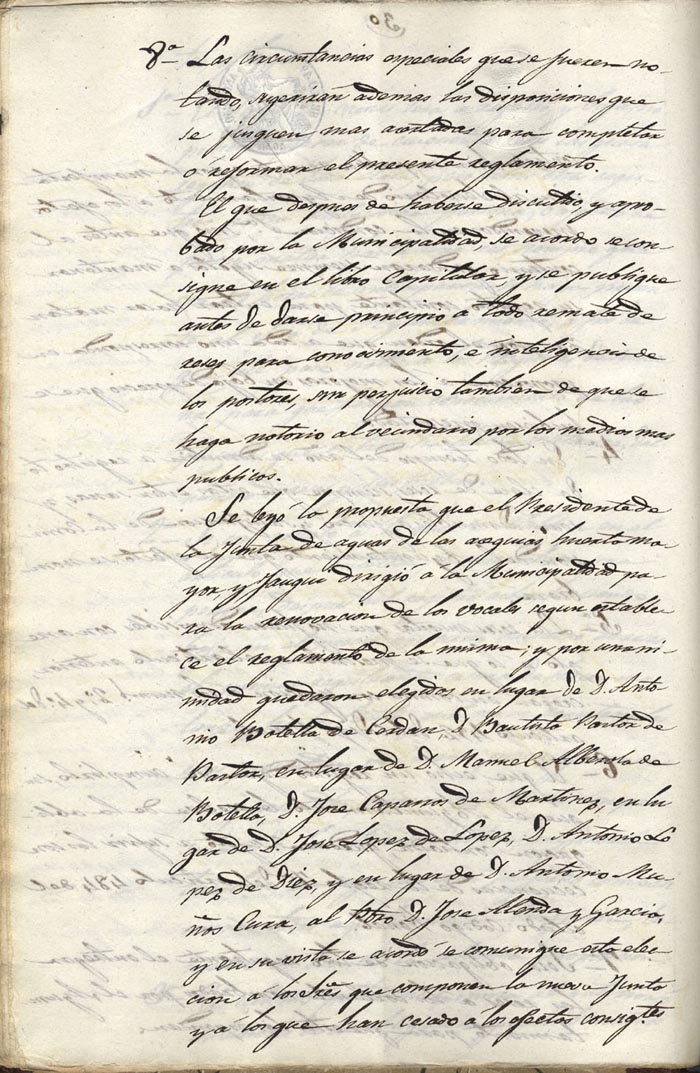 30
8ª Las circunstancias especiales que se fueren no-
tando, sugerirán ademas las disposiciones que
se juzguen mas acertadas para completar
ó reformar el presente reglamento.
El que despues de haberse discutido, y apro-
bado por la Municipalidad, se acordo se con-
signe en el libro Capitular, y se publique
antes de darse principio a todo remate de
reses para conocimiento, e inteligencia de
los postores, sin perjuicio tambien de que se
haga notorio al vecindario por los medios mas
publicos.
Se leyó la propuesta que el Presidente de
la Junta de aguas de las acequias huerta ma-
yor, y Jauqui dirigió á la Municipalidad pa-
ra la renovacion de los vocales segun estable-
ce el reglamento de la misma; y por unani-
midad quedaron elegidos en lugar de D. Anto-
nio Botella de Cerdan, D. Bautista Pastor de
Pastor, en lugar de D. Manuel Alberola de
Botella, D. Jose Caparros de Martinez, en lu-
gar de D. Jose Lopez de Lopez, D. Antonio Lo-
pez de Diez, y en lugar de D. Antonio Mu-
ños Cura, al Pbro D. Jose Abenda y Garcia,
y en su vista se acordó se comunique esta elec-
cion á los Sres que componen la nueva Junta
y á los que han cesado a los efectos consigtes